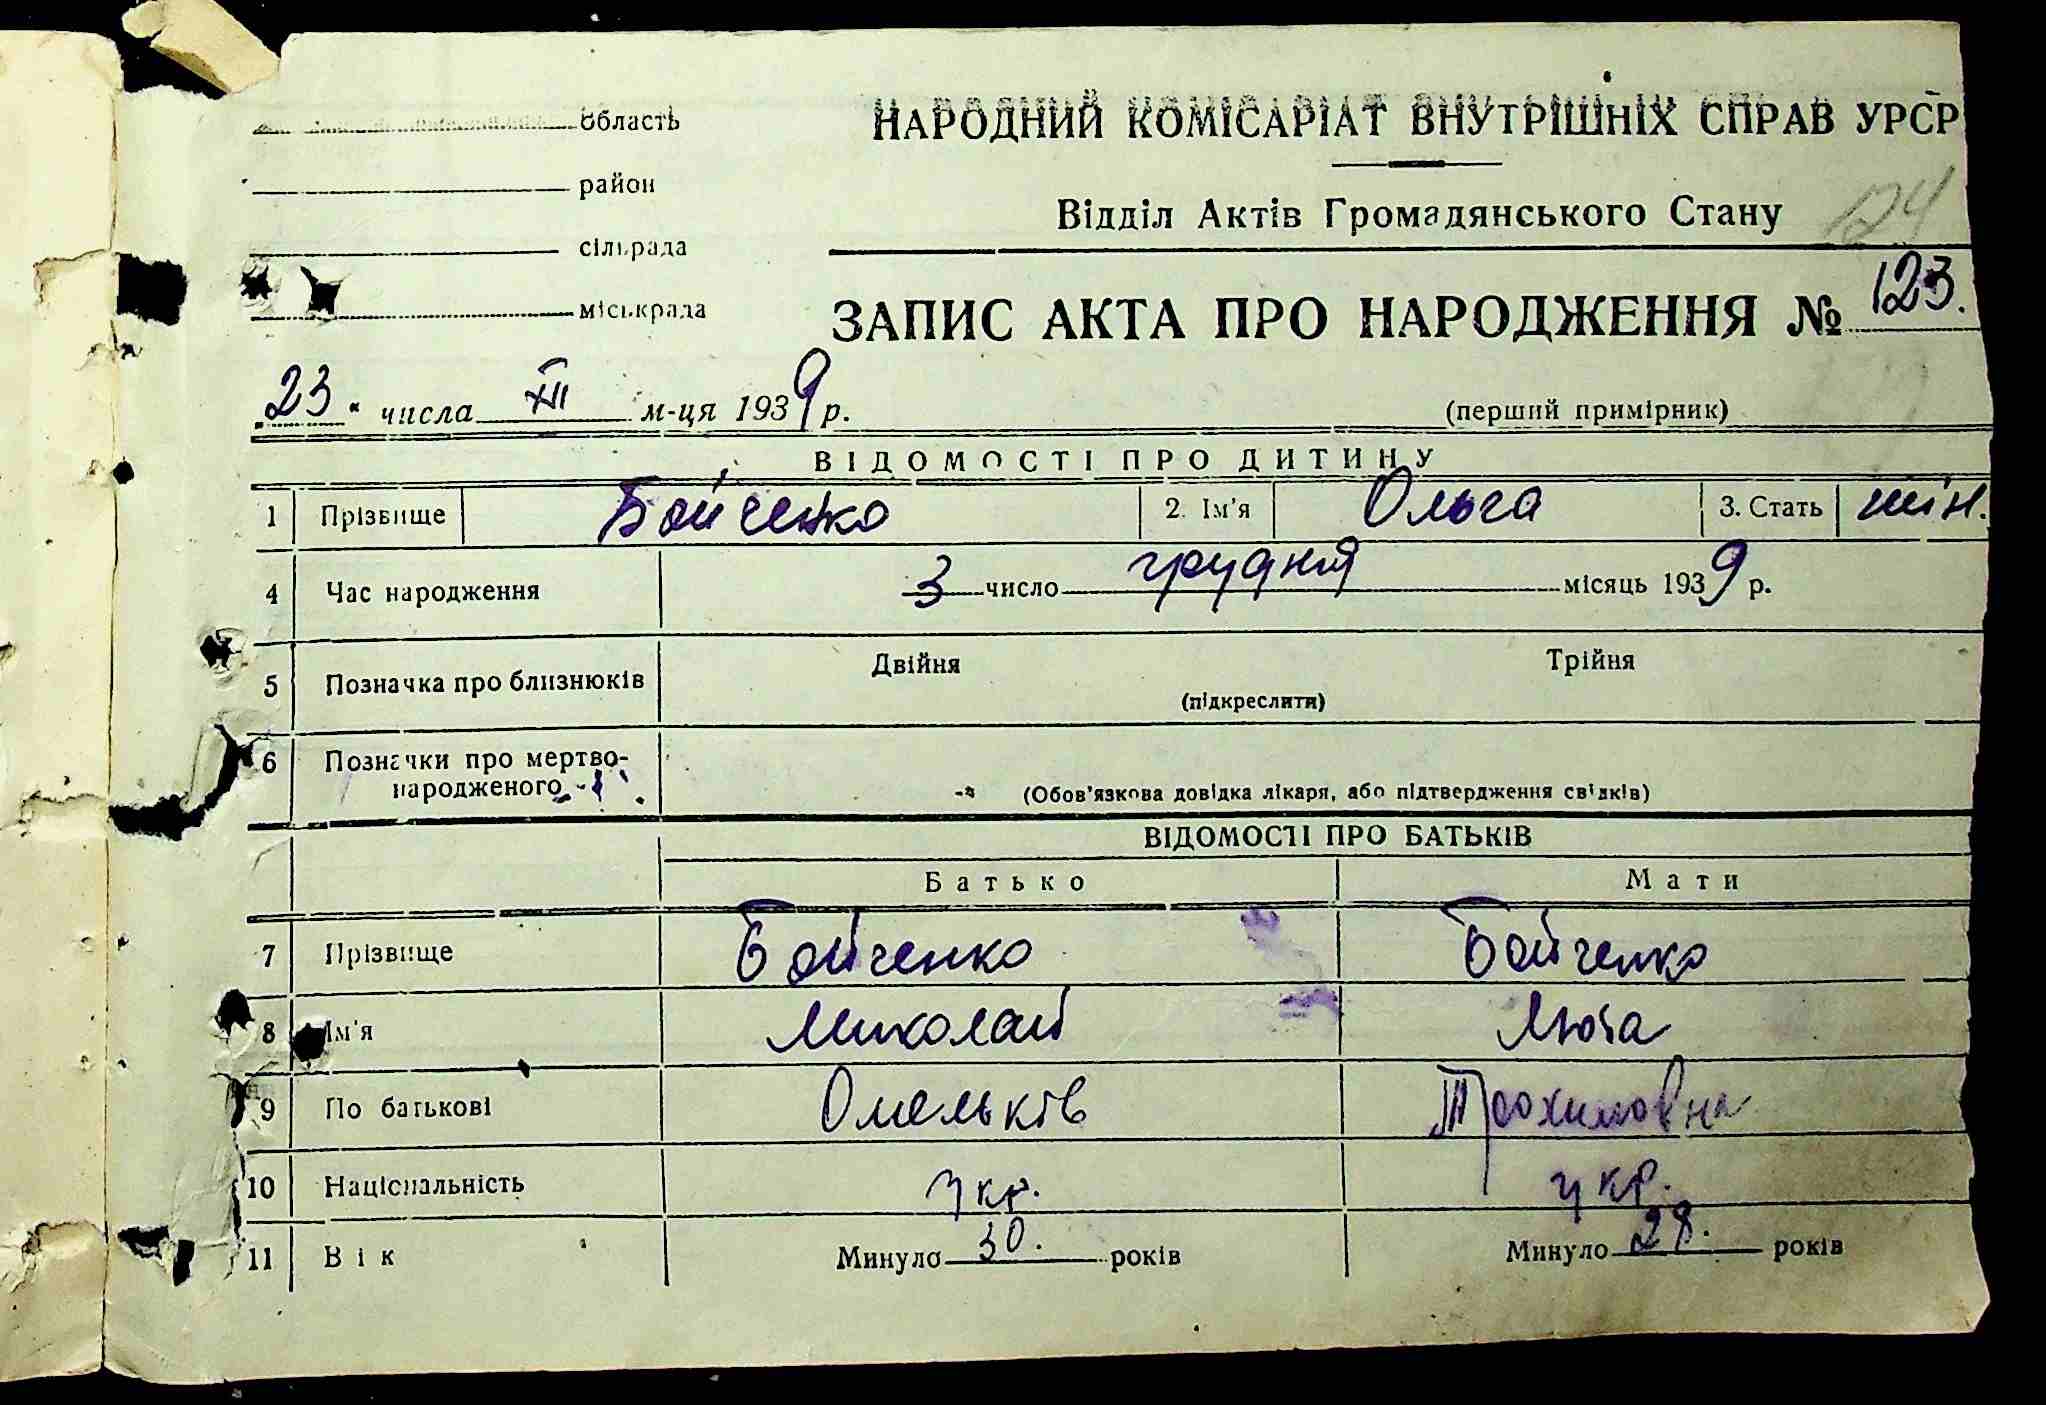 область
район
сільрада
міськрада
НАРОДНИЙ КОМІСАРІАТ ВНУТРІШНІХ СПРАВ УРСР
Відділ Актів Громадянського Стану
124
ЗАПИС АКТА ПРО НАРОДЖЕННЯ № 123.
23 " числа XII м-ця 1939 р.
(перший примірник)
ВІДОМОСТІ ПРО ДИТИНУ
1 Прізвище Бойченко 2. Ім'я Ольга 3. Стать жін.
4 Час народження 3 число грудня місяць 1939 р.
5 Позначка про близнюків Двійня Трійня
(підкреслити)
6 Позначки про мертво-
народженого (Обов'язкова довідка лікаря, або підтвердження свідків)
ВІДОМОСТІ ПРО БАТЬКІВ
Батько Мати
7 Прізвище Бойченко Бойченко
8 Ім'я Миколай
9 По батькові Омельків Трохимовна
10 Національність укр. укр.
11 Вік Минуло 30. років Минуло 28. років